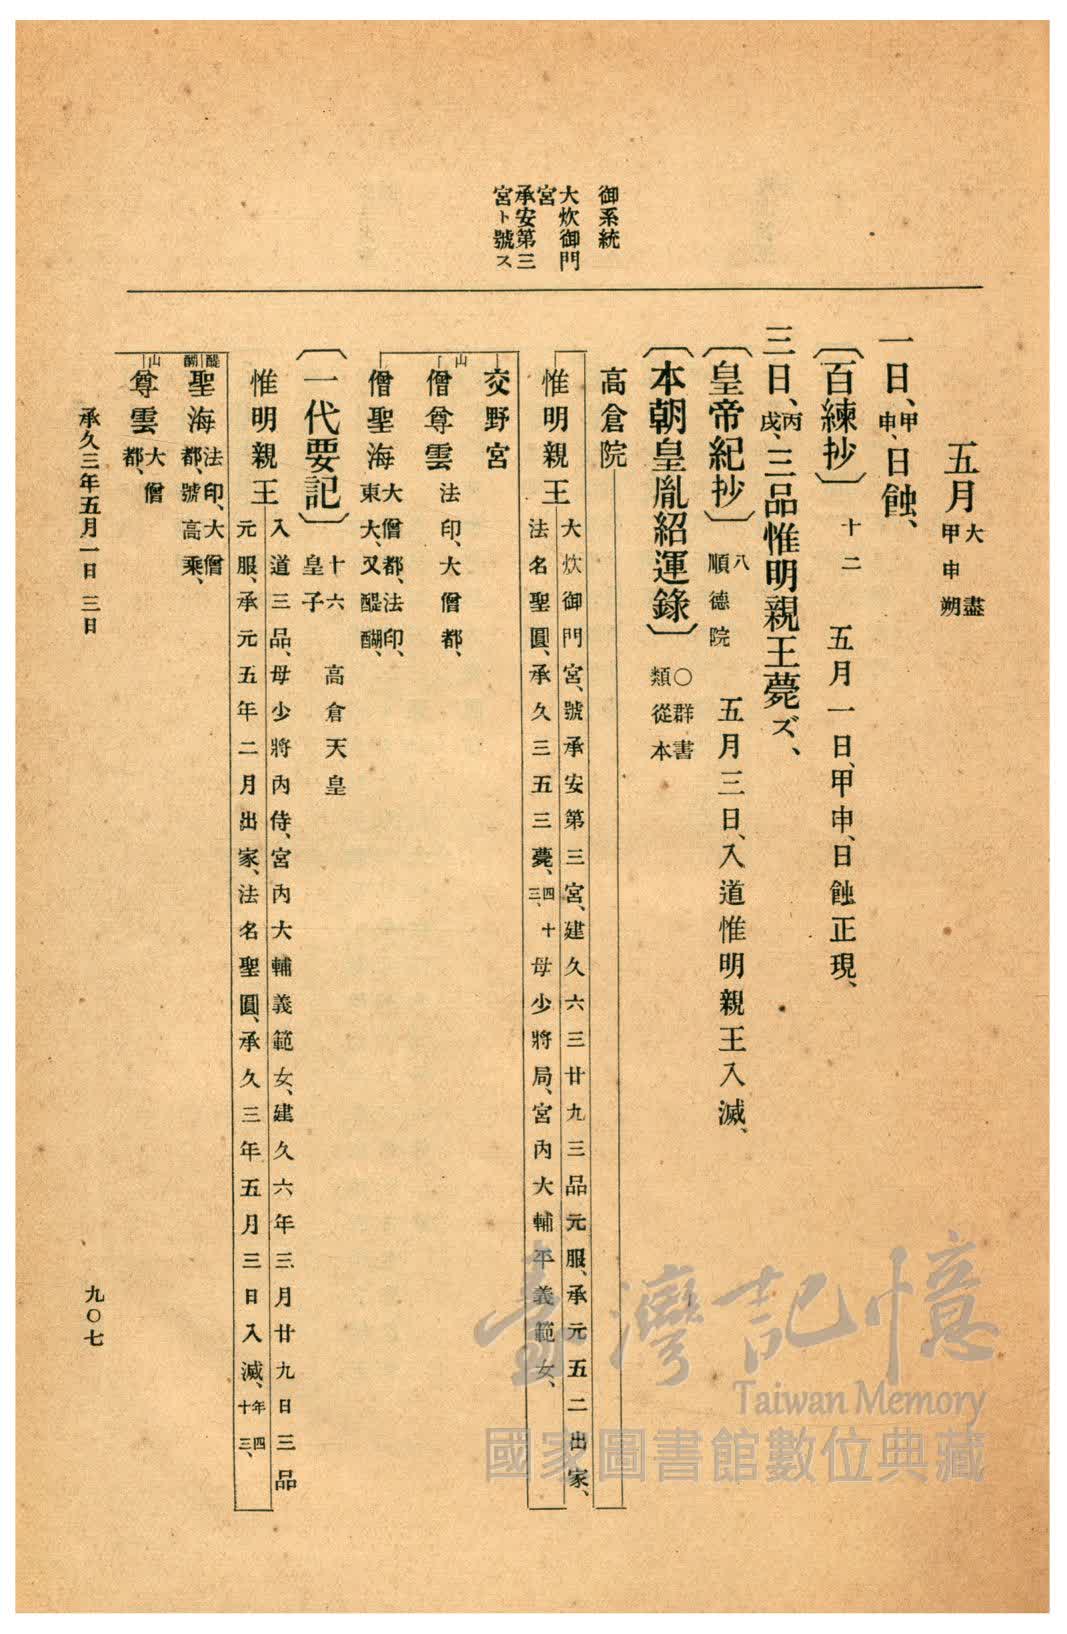 御系統
大炊御門
宮
承安第三
宮ト號ス
五月大盡
甲申朔
一日、甲申、日蝕、
〔百練抄〕十二 五月一日、甲申、日蝕正現、
三日、丙戌、三品惟明親王薨ズ、
〔皇帝紀抄〕八順德院 五月三日、入道惟明親王入滅、
〔本朝皇胤紹運錄〕○群書類從本
高倉院
惟明親王
大炊御門宮、號承安第三宮、建久六三廿九三品元服、承元五二出家、
法名聖圓、承久三五三薨、四十三、母少將局、宮內大輔平義範女、
交野宮
山
僧尊雲 法印、大僧都、
僧聖海 大僧都、法印、
東大、又醍醐、
〔一代要記〕十六皇子 高倉天皇
惟明親王
入道三品、母少將內侍、宮內大輔義範女、建久六年三月廿九日三品
元服、承元五年二月出家、法名聖圓、承久三年五月三日入滅、年四十三、
醍醐
聖海 法印、大僧都、號高乘、
山
尊雲 大僧都、
承久三年五月一日 三日
九〇七
臺灣記憶
Taiwan Memory
國家圖書館數位典藏